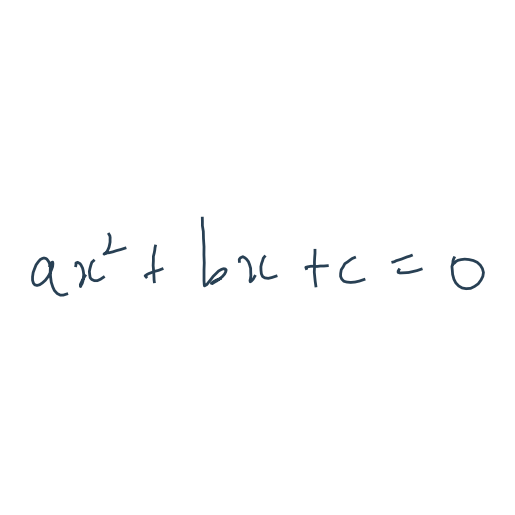 ax² + bx + c = 0